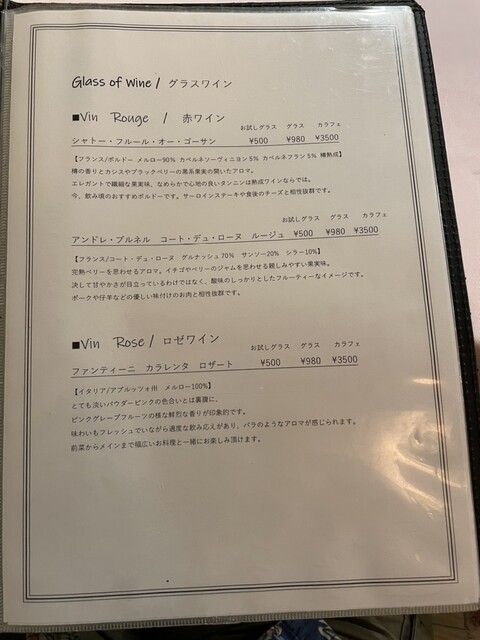 Glass of Wine / グラスワイン
■Vin Rouge / 赤ワイン
お試しグラス グラス カラフェ
シャトー・フルール・オー・ゴーサン ¥500 ¥980 ¥3500
【フランス/ボルドー メルロー90% カベルネソーヴィニヨン5% カベルネフラン5% 樽熟成】
樽の香りとカシスやブラックベリーの黒系果実の開いたアロマ。
エレガントで繊細な果実味、なめらかで心地の良いタンニンは熟成ワインならでは。
今、飲み頃のおすすめボルドーです。サーロインステーキや食後のチーズと相性抜群です。
お試しグラス グラス カラフェ
アンドレ・ブルネル コート・デュ・ローヌ ルージュ ¥500 ¥980 ¥3500
【フランス/コート・デュ・ローヌ グルナッシュ70% サンソー20% シラー10%】
完熟ベリーを思わせるアロマ。イチゴやベリーのジャムを思わせる親しみやすい果実味。
決して甘やかさが目立っているわけではなく、酸味のしっかりとしたフルーティーなイメージです。
ポークや仔羊などの優しい味付けのお肉と相性抜群です。
■Vin Rose / ロゼワイン
お試しグラス グラス カラフェ
ファンティーニ カラレンタ ロザート ¥500 ¥980 ¥3500
【イタリア/アブルッツォ州 メルロー100%】
とても淡いパウダーピンクの色合いとは裏腹に、
ピンクグレープフルーツの様な鮮烈な香りが印象的です。
味わいもフレッシュでいながら適度な飲み応えがあり、バラのようなアロマが感じられます。
前菜からメインまで幅広いお料理と一緒にお楽しみ頂けます。